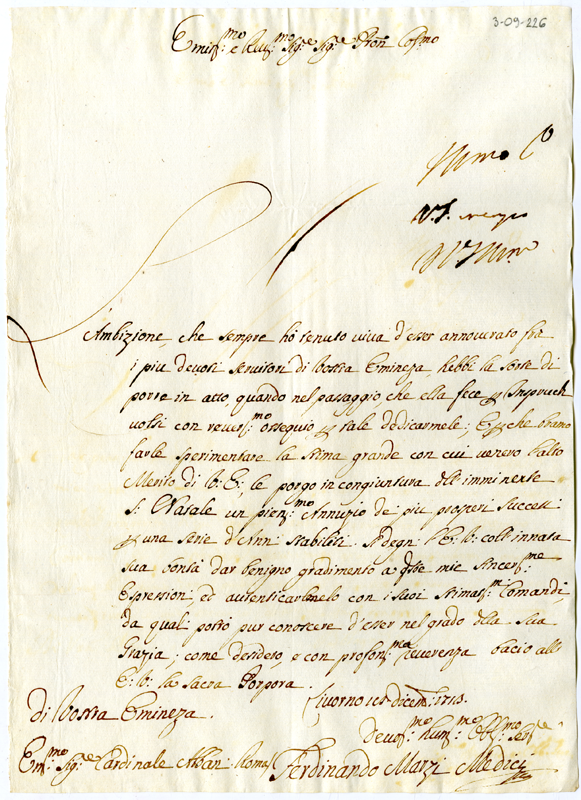 3-09-226
Emin:mo e Reu:mo Sig:re Sig:re Pron Col:mo
Ambizione, che sempre hò tenuto viva d'esser annoverato frà
i più devoti servitori di Vostra Emineza, hebbi la sorte di
porre in atto, quando nel passaggio che ella fece p Inspruch
volsi con rever:mo ossequio p tale dedicarmele; E p che bramo
farle sperimentare la stima grande con cui venero l'alto
Merito di V: E:, le porgo in congiuntura dell imminente
S: Natale un pien:mo Annuzio de più prosperi successi
p una serie d'Anni stabiliti. Si degni l'E: V: coll innata
sua bontà dar benigno gradimento a qste mie sincer:me
Espressioni ed autenticarmelo con i suoi stimat:mi Comandi,
da quali possa pur conoscere d'esser nel grado della sua
Grazia; come desidero, e con profon:ma riverenza bacio all
E: V: la sacra Porpora.
Livorno dicem: 1718.
di Vostra Emineza.
Devot:mo hum:mo Obb:mo Ser:e
Em:mo Sig:re Cardinale Alban: Roma
Ferdinando Marzi Medici